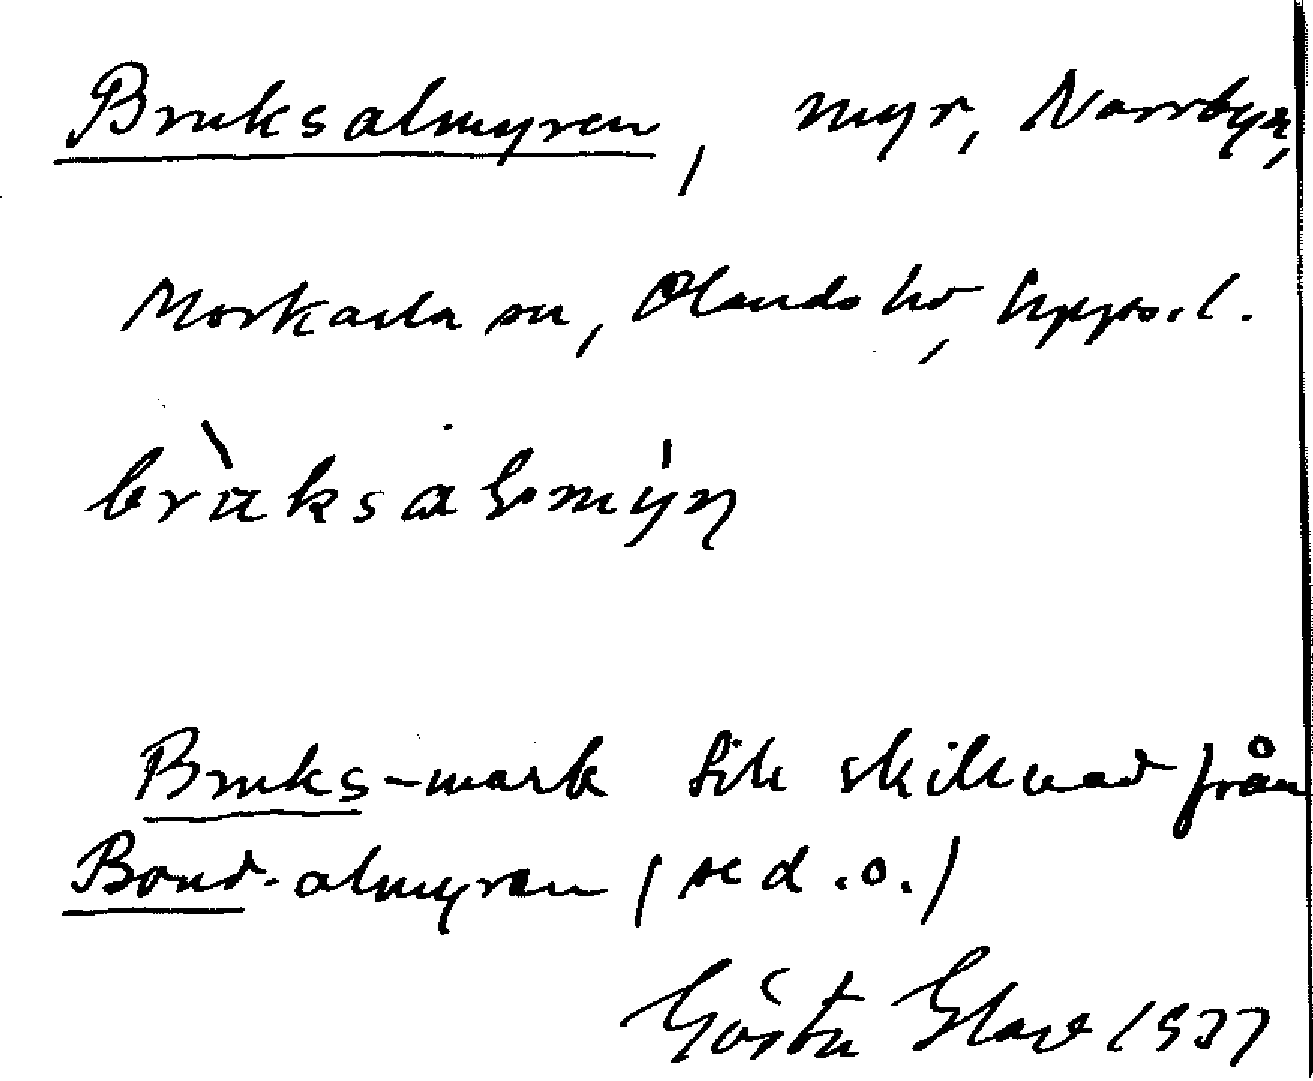 Bruksalmyren, myr, Norrbyn,
Morkarla sn, Olands hd, Upps. l.
brùksalmýn
Bruks-mark till skillnad från
Bond-almyren (se d. o.)
Gösta